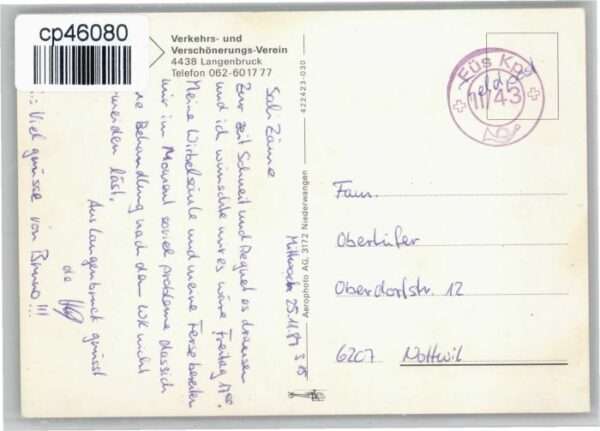 cp46080
Verkehrs- und
Verschönerungs-Verein
4438 Langenbruck
Telefon 062-60 17 77
422423-030
Aerophoto AG, 3172 Niederwangen
Mittwoch 25.11.87
Sali Zäme
Zur Zeit Schneit und Regnet es draussen
und ich wünschte mir es wäre Freitag 17°°.
Meine Wirbelsäule und meine Ferse bereiten
mir im Moment soviel probleme dass ich
Behandlung nach dem WK nicht
werden läst.
Aus Langenbruck grüsst
de
Viel grüsse von Bruno!!!
Füs Kp
II/43
Feldpost
Fam.
Oberhüfer
Oberdorfstr. 12
6207 Nottwil